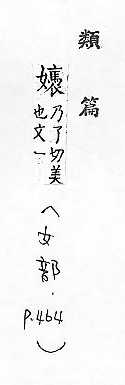 類篇
乃了切美
也文一
(女部.
p.464)